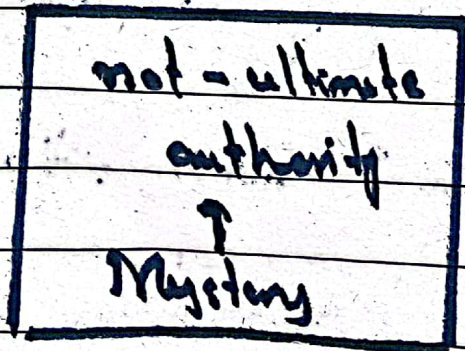 not-ultimate
authority
↑
Mystery